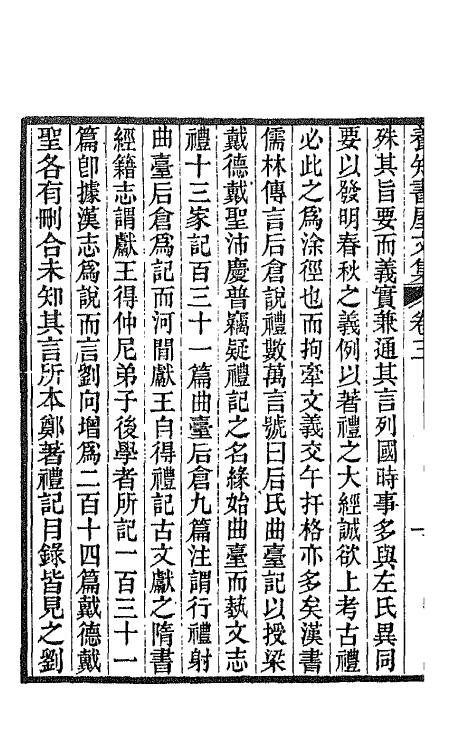 養知書屋文集 卷三
殊其旨要而義實兼通其言列國時事多與左氏異同
要以發明春秋之義例以著禮之大經誠欲上考古禮
必此之為涂徑也而拘牽文義交午扞格亦多矣漢書
儒林傳言后倉說禮數萬言號曰后氏曲臺記以授梁
戴德戴聖沛慶普竊疑禮記之名緣始曲臺而藝文志
禮十三家記百三十一篇曲臺后倉九篇注謂行禮射
曲臺后倉為記而河閒獻王自得禮記古文獻之隋書
經籍志謂獻王得仲尼弟子後學者所記一百三十一
篇卽據漢志為說而言劉向增為二百十四篇戴德戴
聖各有刪合未知其言所本鄭著禮記目錄皆見之劉